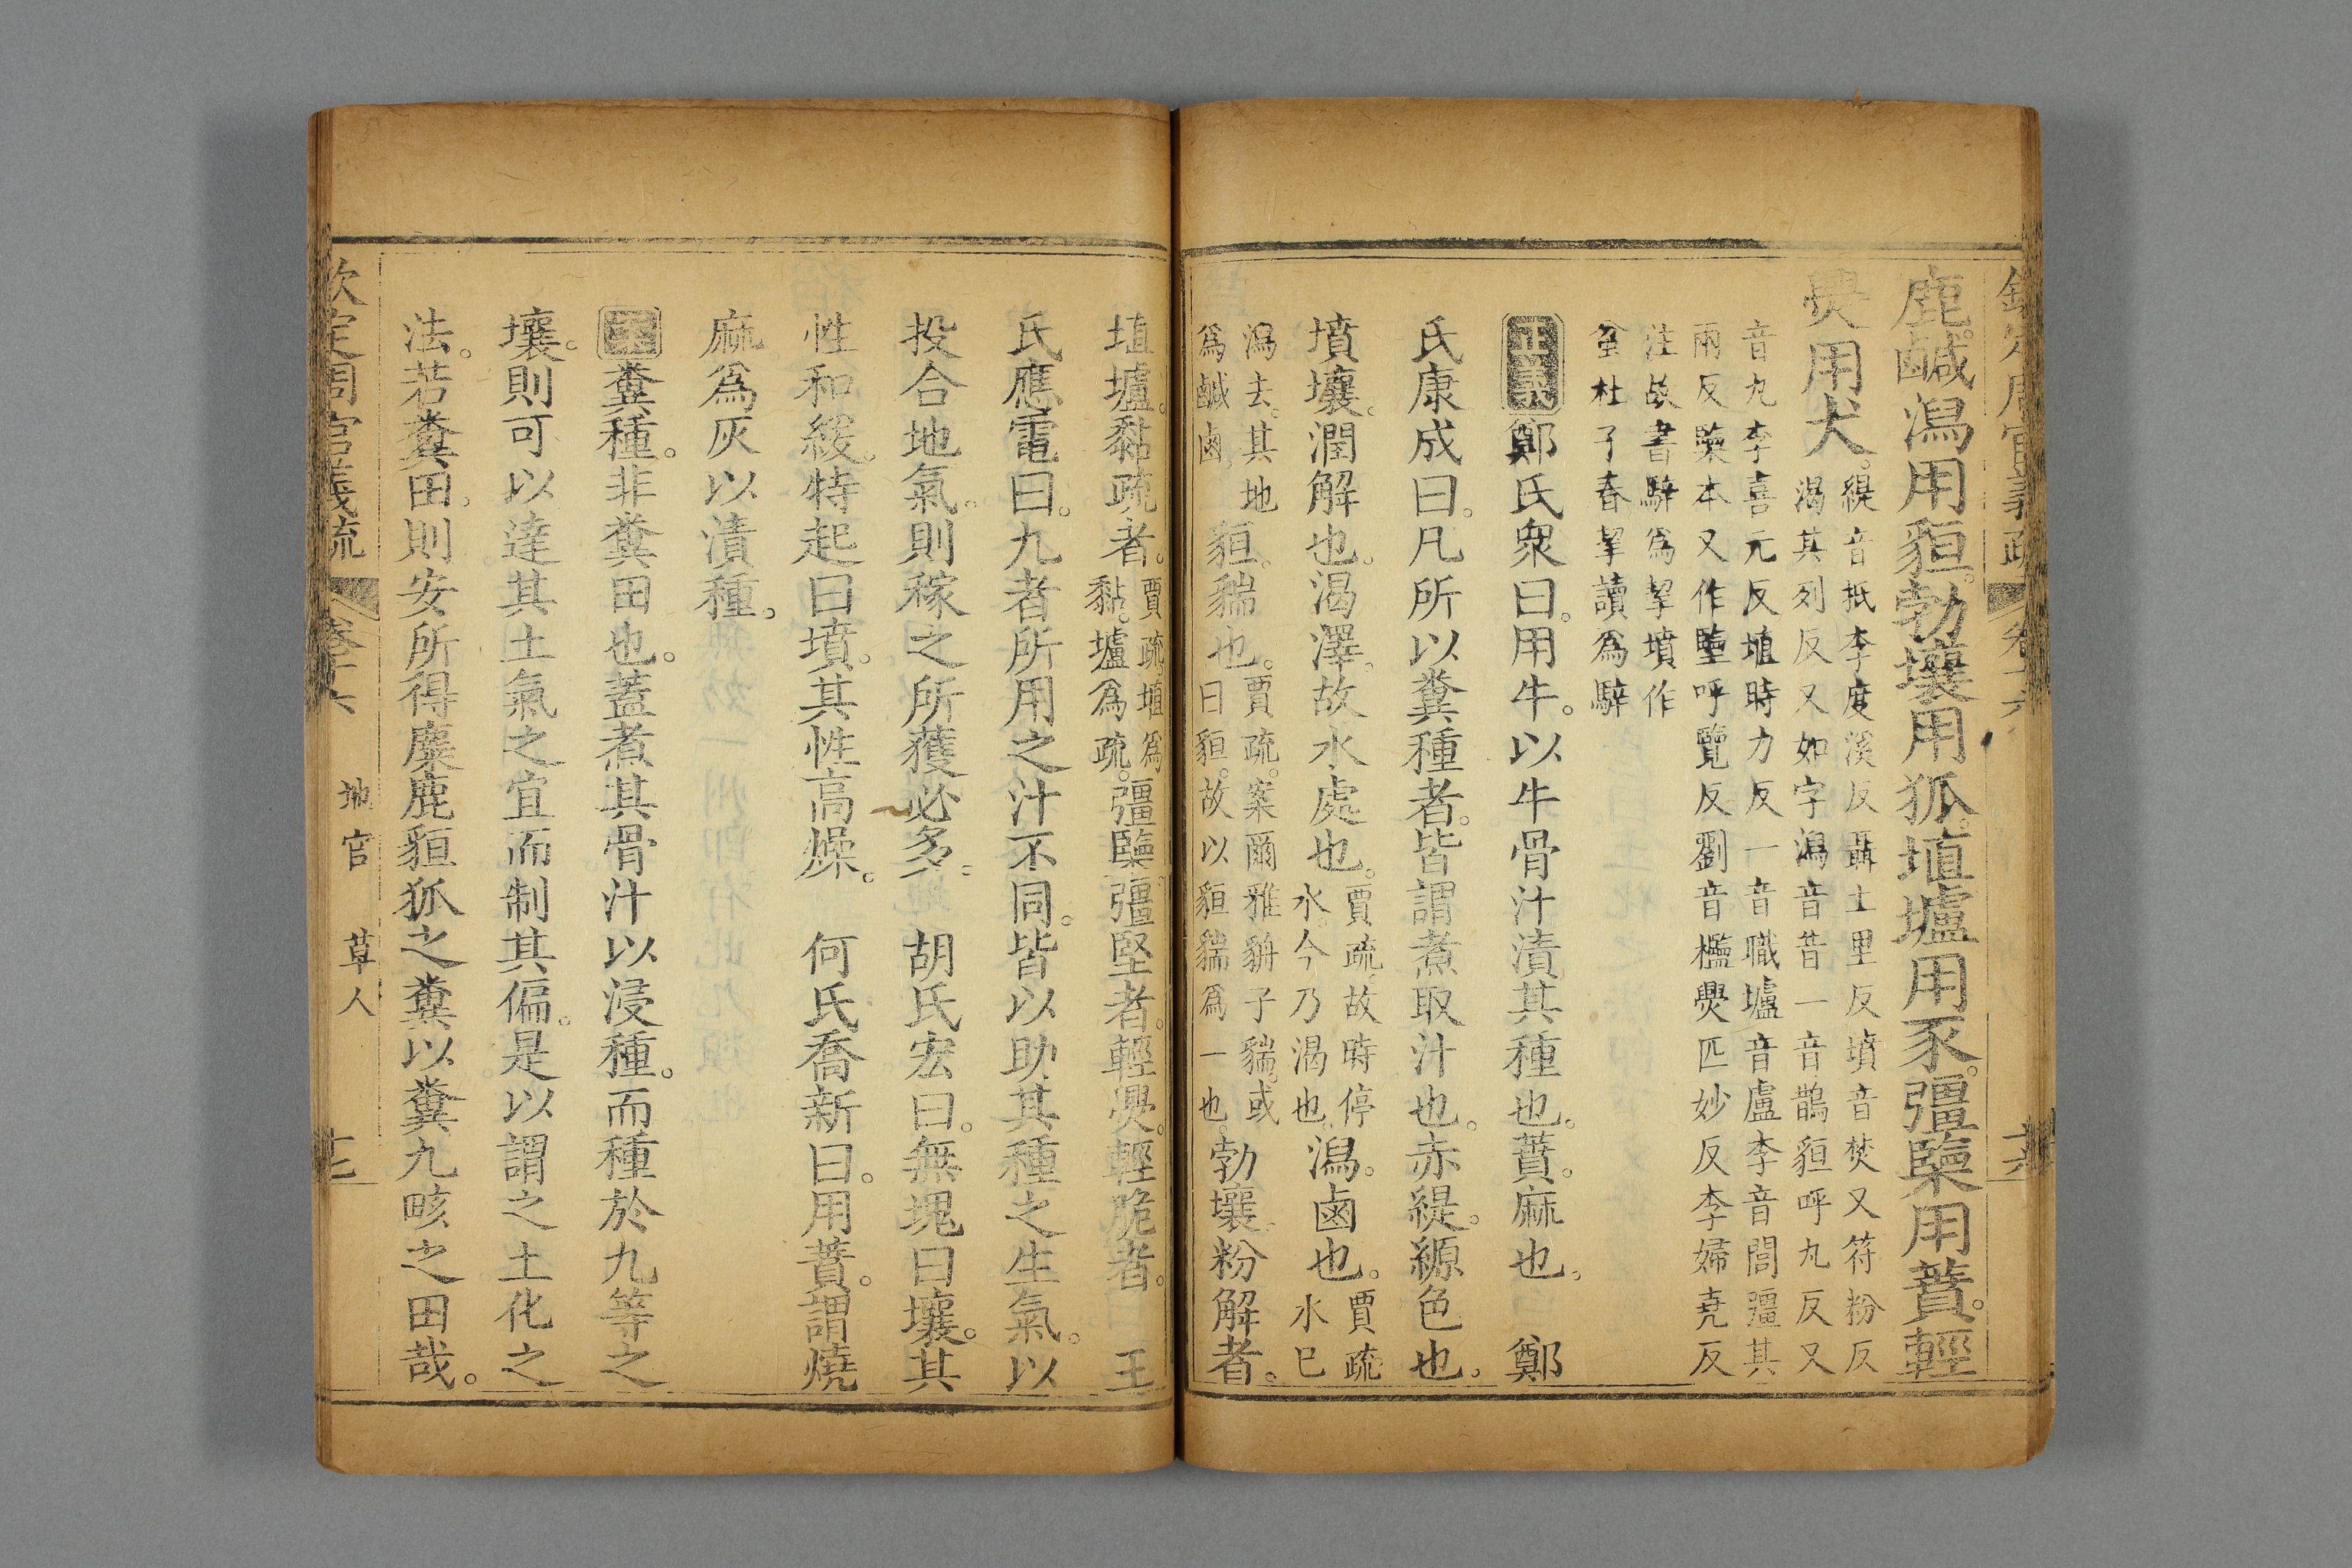 鹿。鹹潟用貆。勃壤用狐。埴壚用豕。彊㯺用蕡。輕
㸁用犬。緹音抵李度溪反聶士里反墳音焚又符粉反
渴其列反又如字潟音昔一音鵲貆呼丸反又
音丸李喜元反埴時力反一音職壚音盧李音閭彊其
兩反㯺本又作壏呼覽反劉音檻㸁匹妙反李婦堯反
注故書騂爲挈墳作
坌杜子春挈讀爲騂
正義鄭氏衆曰。用牛。以牛骨汁漬其種也。蕡。麻也。 鄭
氏康成曰。凡所以糞種者。皆謂煮取汁也。赤緹。縓色也。
墳壤。潤解也。渴澤。故水處也。賈疏。故時停
水。今乃渴也。潟。鹵也。賈疏
水已
潟去。其地
爲鹹鹵。貆。貒也。賈疏。案爾雅貈子貆。或
曰貆。故以貆貒爲一也。勃壤。粉解者。
埴壚。黏疏者。賈疏。埴爲
黏。壚爲疏。彊㯺。彊堅者。輕㸁。輕脆者。 王
氏應電曰。九者所用之汁不同。皆以助其種之生氣。以
投合地氣。則稼之所獲必多。 胡氏宏曰。無塊曰壤。其
性和緩。特起曰墳。其性高燥。 何氏喬新曰。用蕡。謂燒
麻爲灰以漬種。
糞種。非糞田也。蓋煮其骨汁以浸種。而種於九等之
壤。則可以達其土氣之宜而制其偏。是以謂之土化之
法。若糞田。則安所得麋鹿貆狐之糞以糞九畡之田哉。
欽定周官義疏 卷十六 地官 草人